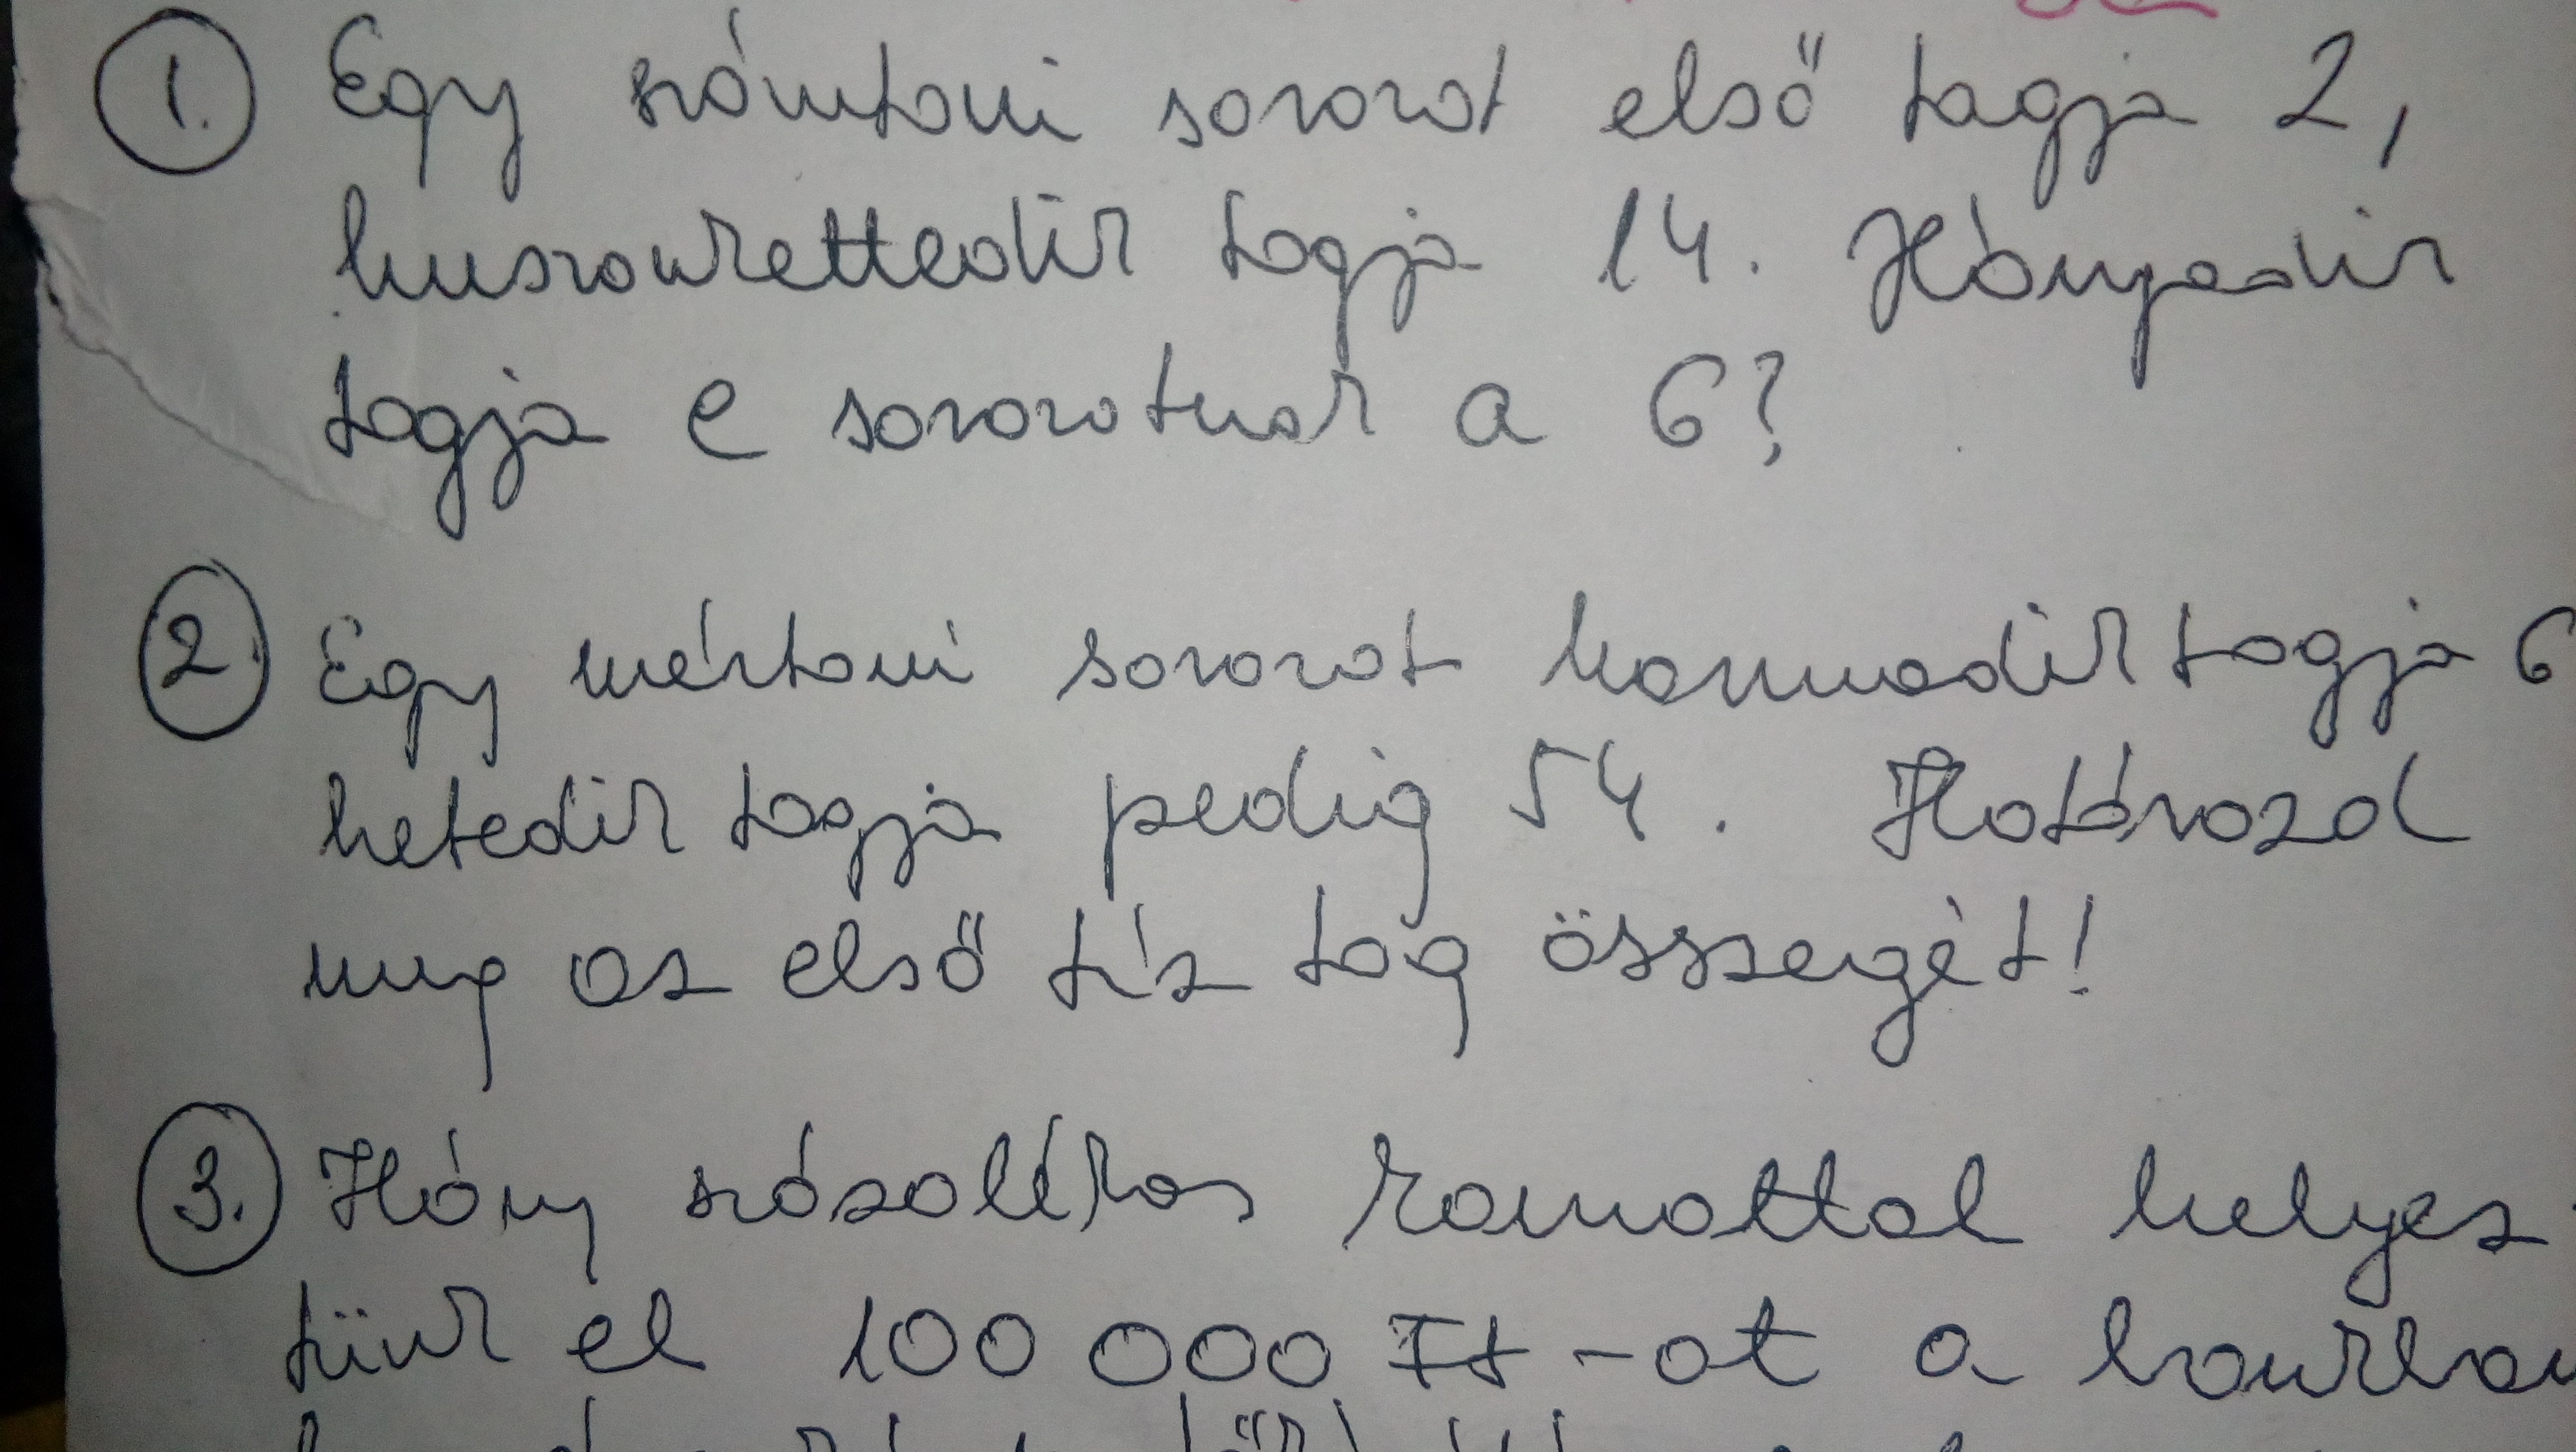 1. Egy számtani sorozat első tagja 2,
huszonkettedik tagja 14. Hányadik
tagja e sorozatnak a 6?
2. Egy mértani sorozat harmadik tagja 6
hetedik tagja pedig 54. Határozd
meg az első tíz tag összegét!
3. Hány százalékos kamattal helyez-
tünk el 100 000 Ft-ot a bankban